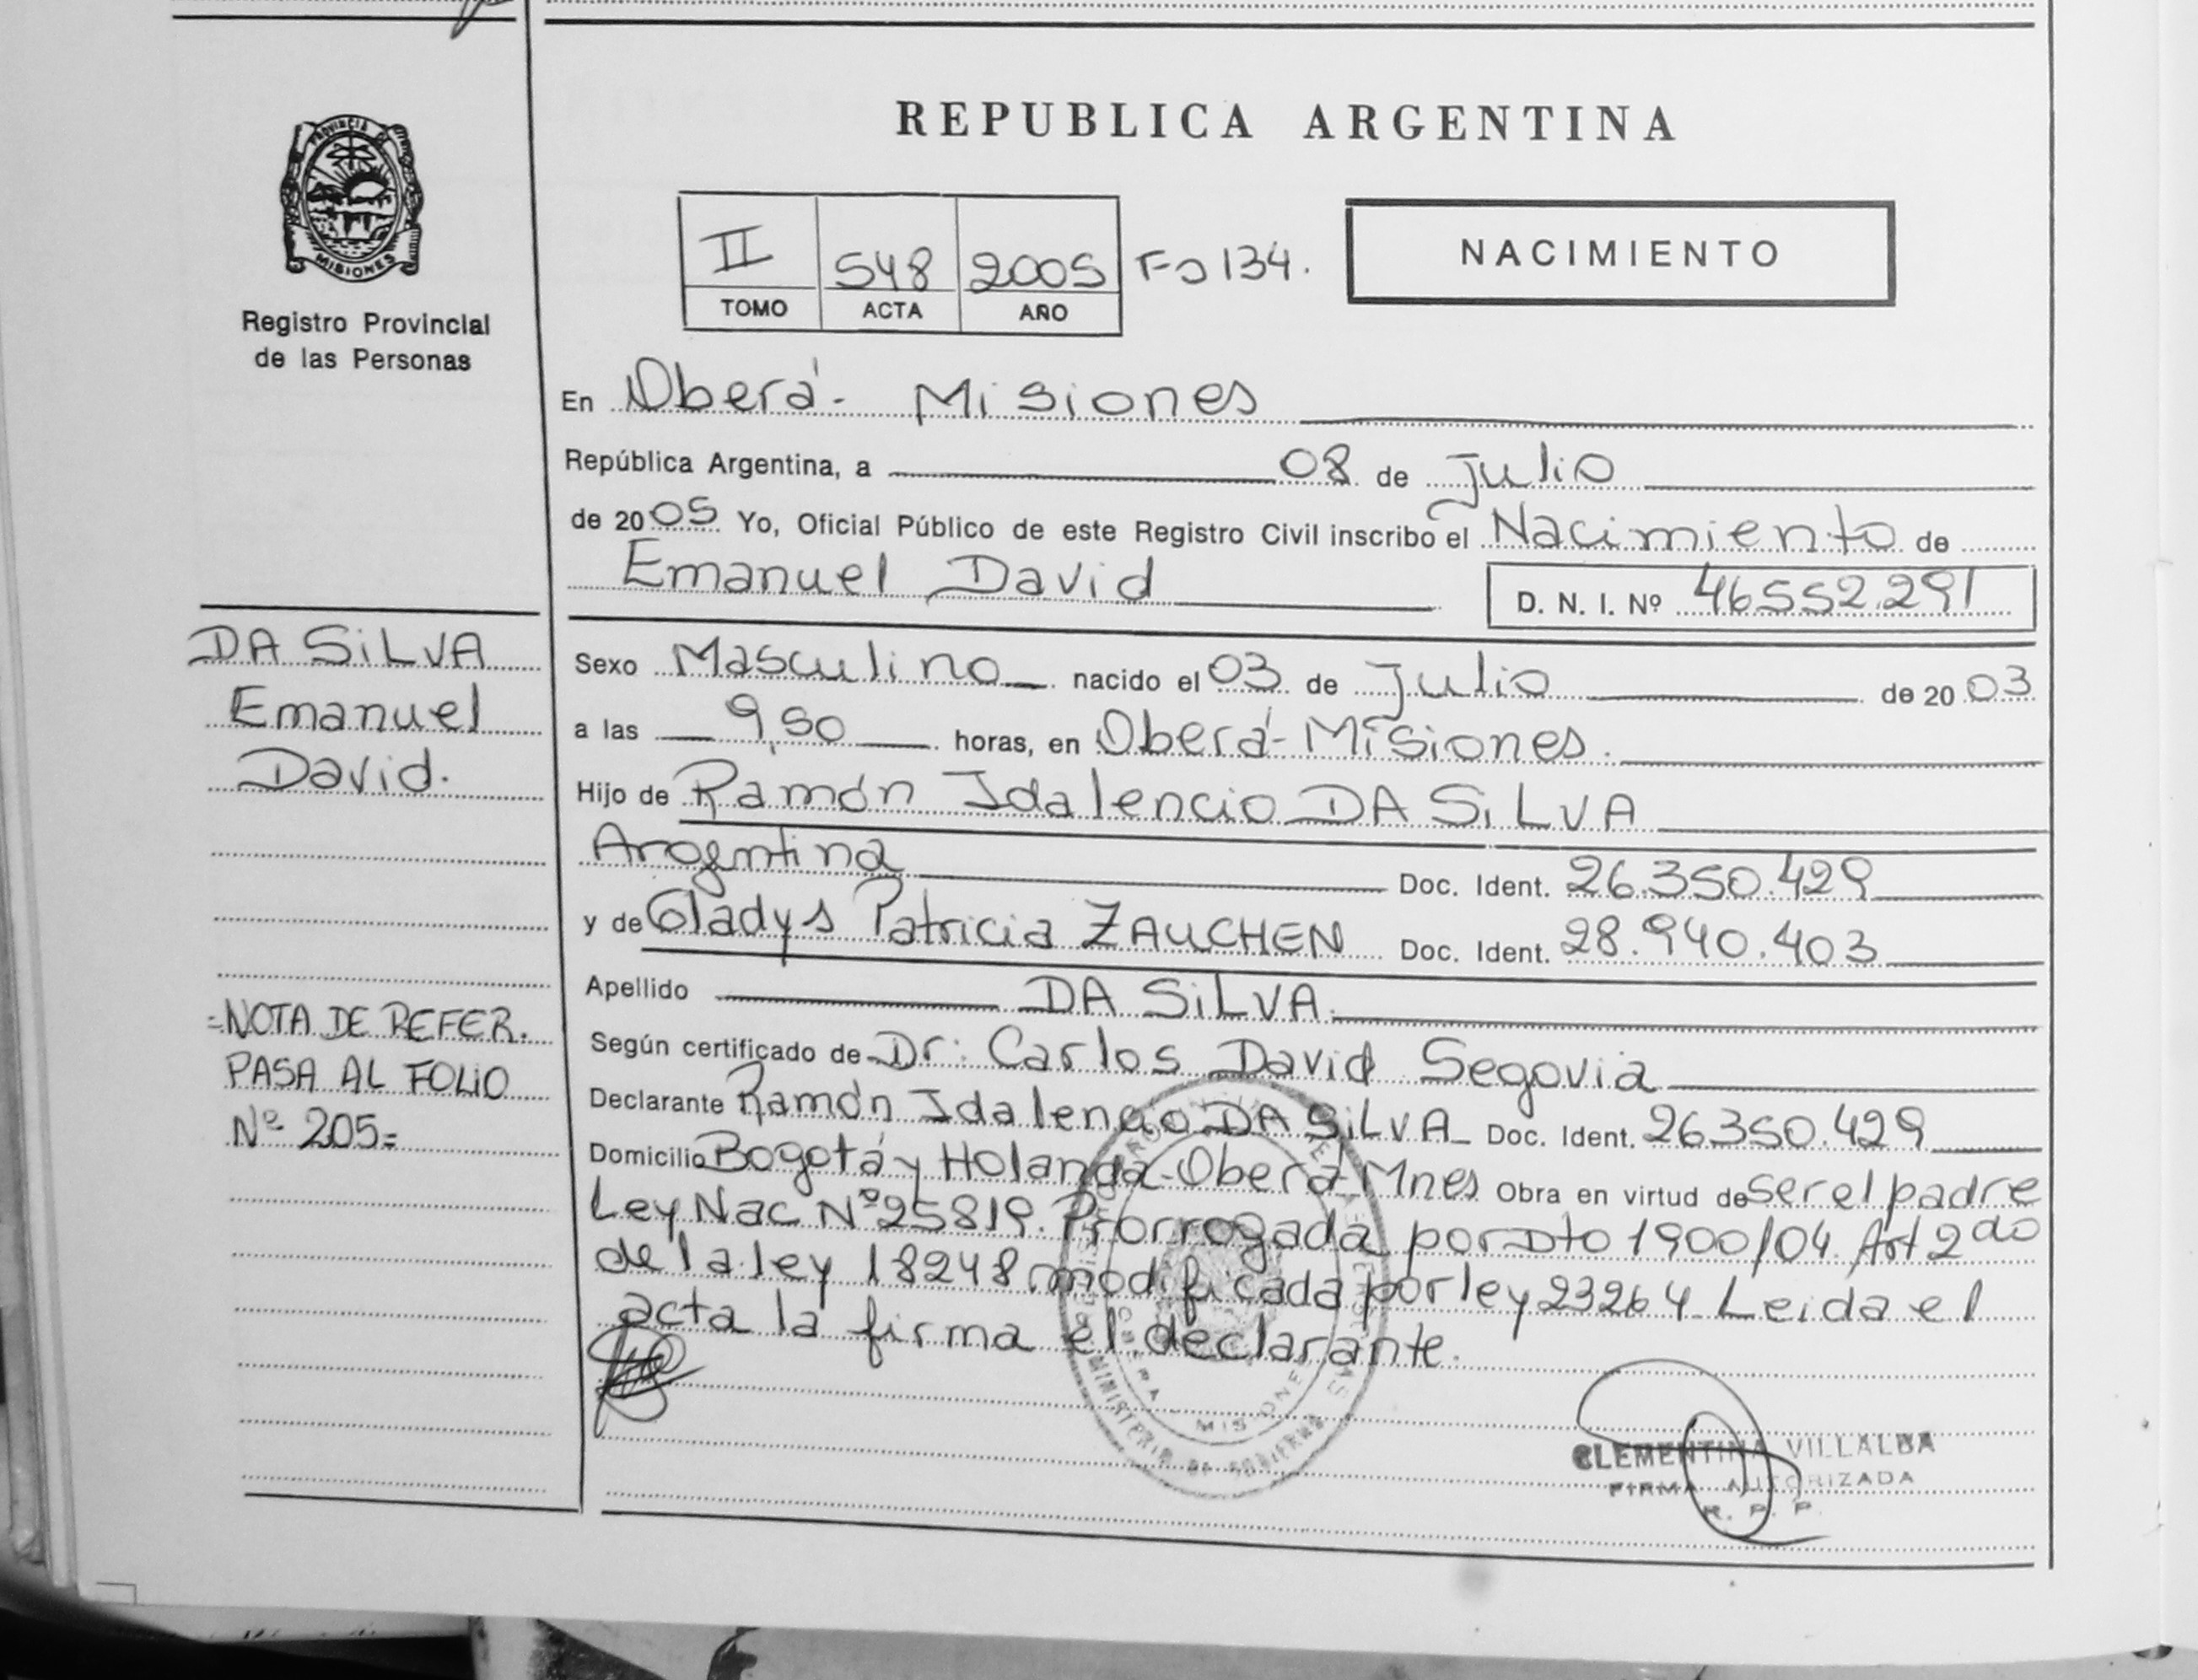 PROVINCIA DE
MISIONES
Registro Provincial
de las Personas
REPUBLICA ARGENTINA
II 548 2005 Fo 134.
TOMO ACTA AÑO
NACIMIENTO
En Oberá - Misiones
República Argentina, a 08 de Julio
de 2005 Yo, Oficial Público de este Registro Civil inscribo el Nacimiento de
Emanuel David D. N. I. Nº 46552.291
DA SiLVA
Emanuel
David.
Sexo Masculino nacido el 03 de Julio de 2003
a las 9,50 horas, en Oberá - Misiones.
Hijo de Ramón Idalencio DA SiLVA
Argentina Doc. Ident. 26.350.429
y de Gladys Patricia ZAUCHEN Doc. Ident. 28.940.403
Apellido DA SiLVA.
Según certificado de Dr: Carlos David Segovia
Declarante Ramón Idalencio DA SiLVA Doc. Ident. 26350.429
Domicilio Bogotá y Holanda - Oberá - Mnes Obra en virtud de ser el padre
Ley Nac Nº 25819. Prorrogada por Dto 1900/04. Art 2do
de la ley 18248 modificada por ley 23264 Leida el
acta la firma el declarante.
=NOTA DE REFER.
PASA AL FOLIO
Nº 205=
OBERA - MISIONES
MINISTERIO DE GOBIERNO
CLEMENTINA VILLALBA
FIRMA AUTORIZADA
R. P. P.